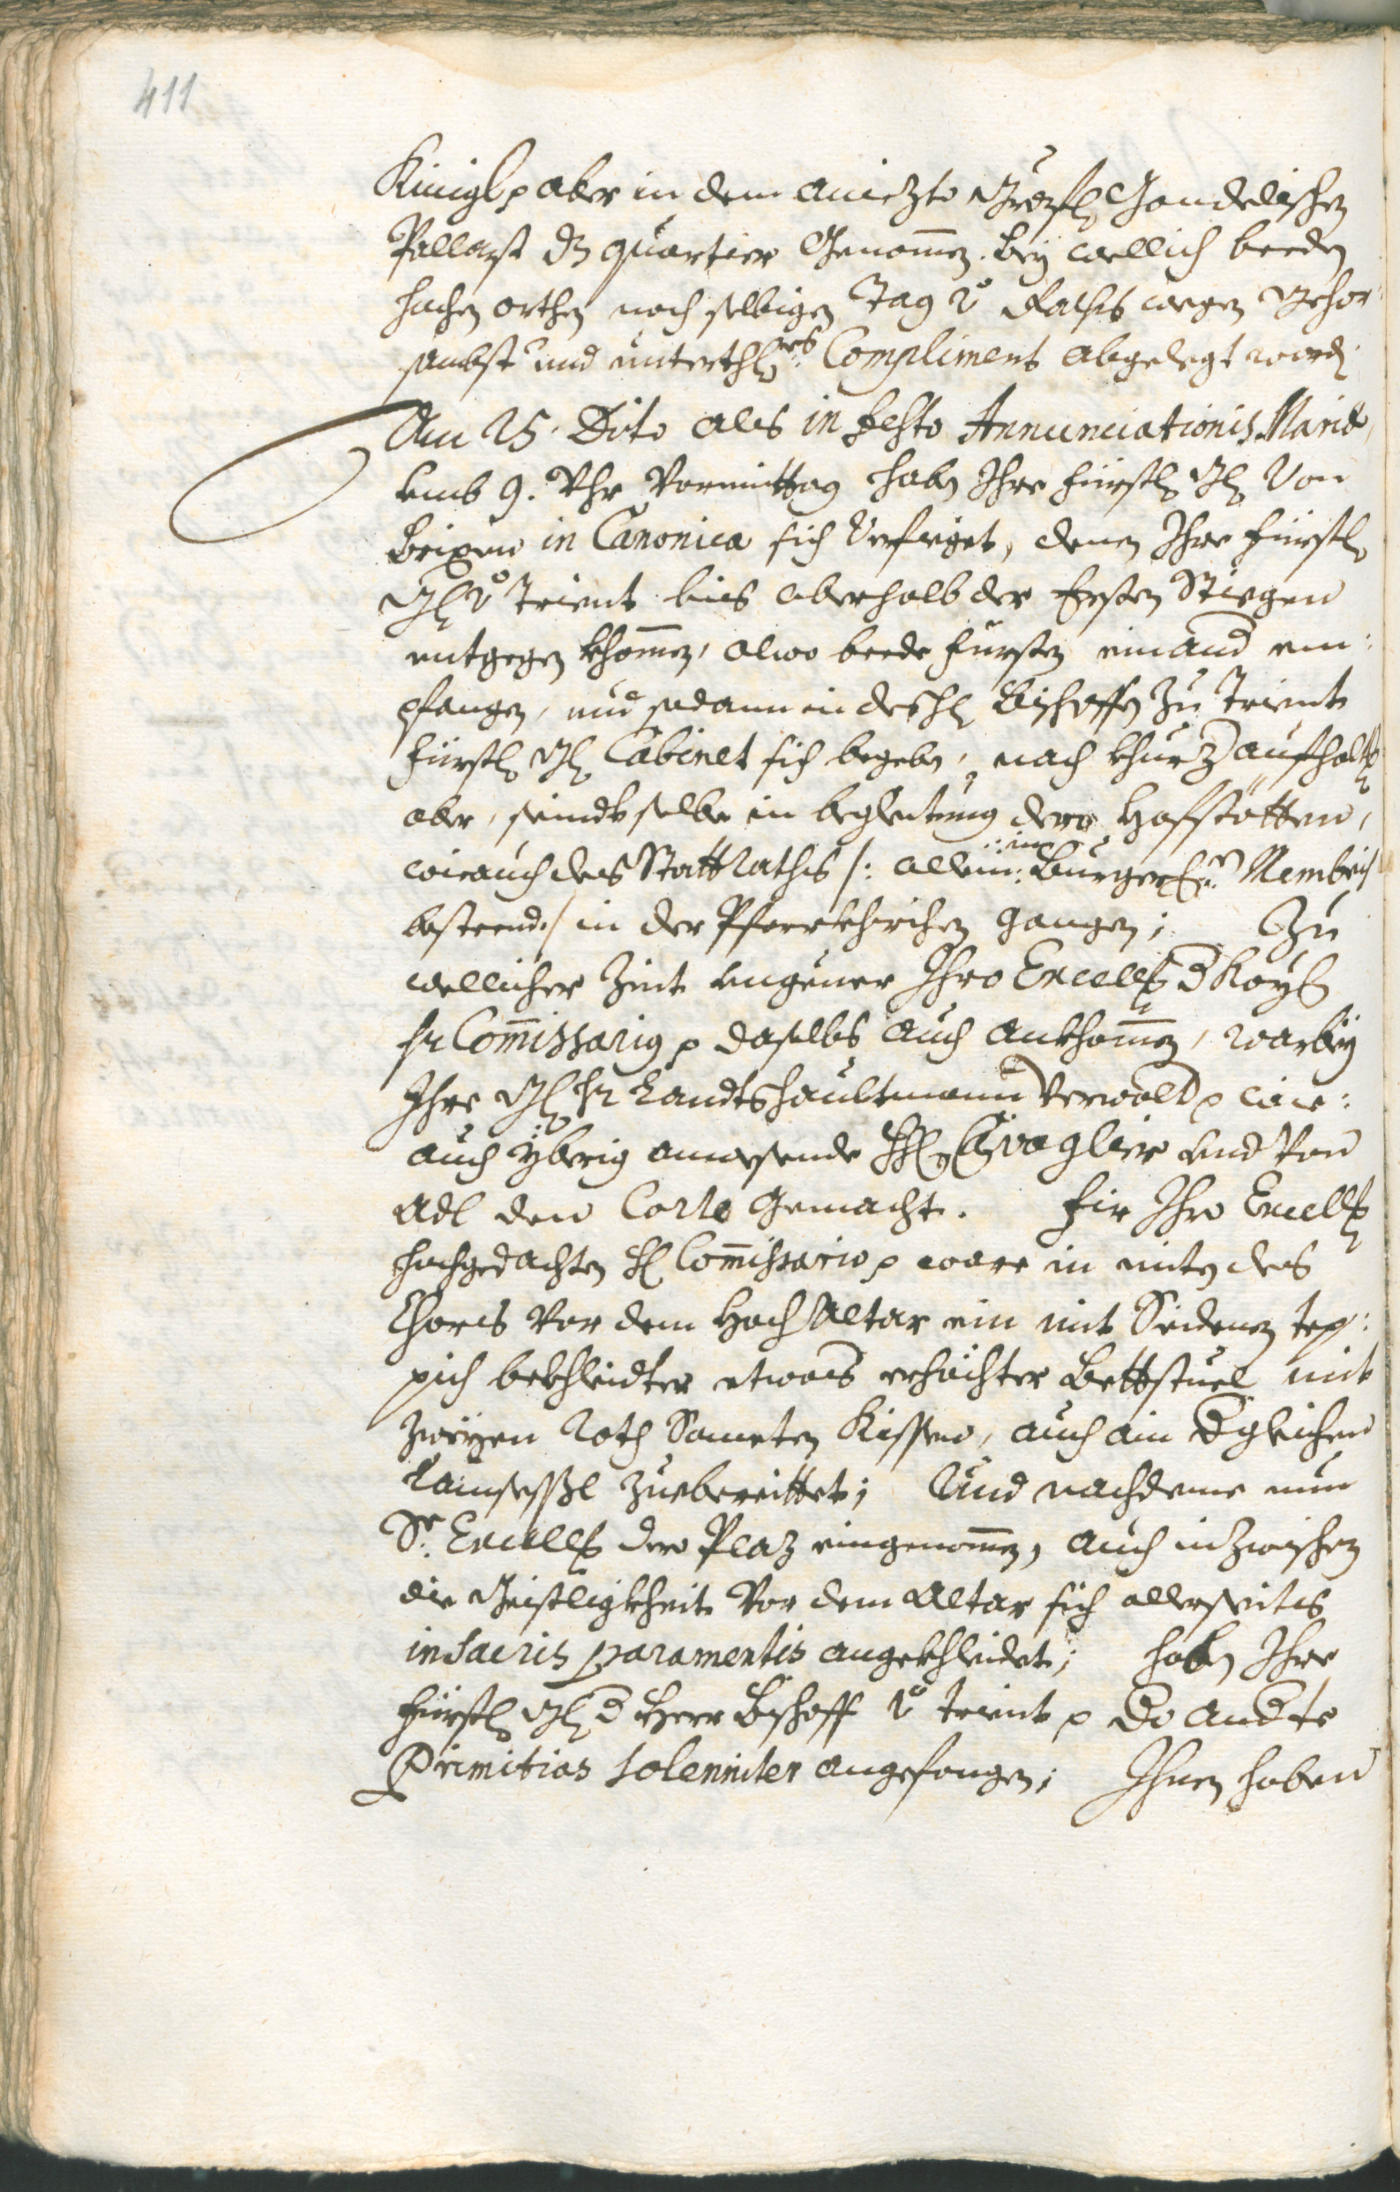 411
Künigl p aber in dem aniezto Gräfl: Gondelischen
Pallast dz quartier Genommen. bey wellich beeden
hochen orthen noch selbigen Tag vo Raths wegen gehor:
sambst und unterthl:es Compliment abgelegt word:
Am 25. Dito als in festo Annunciationis Mariae,
umb 9. Uhr Vormittag haben Ihre fürstl: Gl: Von
Brixen in Canonica sich Verfieget, denen Ihre fürstl:
Gl: vo Trient bies oberhalb der Ersten Stiegen
entgegen khommen, alwo beede fürsten einand em:
pfangen, und sodann in des H: Bischoffen Zu Trient
fürstl: Gl: Cabinet sich begeben, nach khurz aufhalten
aber, seindt selbe in begleitung dero Hofstötten,
wie auch des Stattraths /: allein: in Burgerl:n Membris
bestend:/ in der Pfarrkhirchen gangen; Zu
wellicher Zeit Ihro Excell: d Kayl:
Hr Commissarius p daselbs auch ankhommen, warbey
Ihre Gl: Hr Landtshaubtmann Verwald p wie:
auch yberig anwesende HH: Cavaglier und Von
Adl den Corte gemacht. Fir Ihro Excell:
hochgedachten H: Commissario p ware in miten des
Chors Vor dem Hoch Altar ein mit Seidenen tep:
pich bekhleidter etwas erhöchter Bettstuel mit
zweyen Roth Sameten Kissen, auch ain dgleichen
Lainsessl zuebereittet; Und nachdeme nun
Sr. Excell: dero Plaz eingenommen, auch inzwischen
die Geistligkheit Vor dem Altar sich allerseits
in sacris paramentis angekhleidet; haben Ihre
fürstl: Gl: d Herr Bischoff vo Trient p
Primitias solenniter angefangen; Ihnen haben